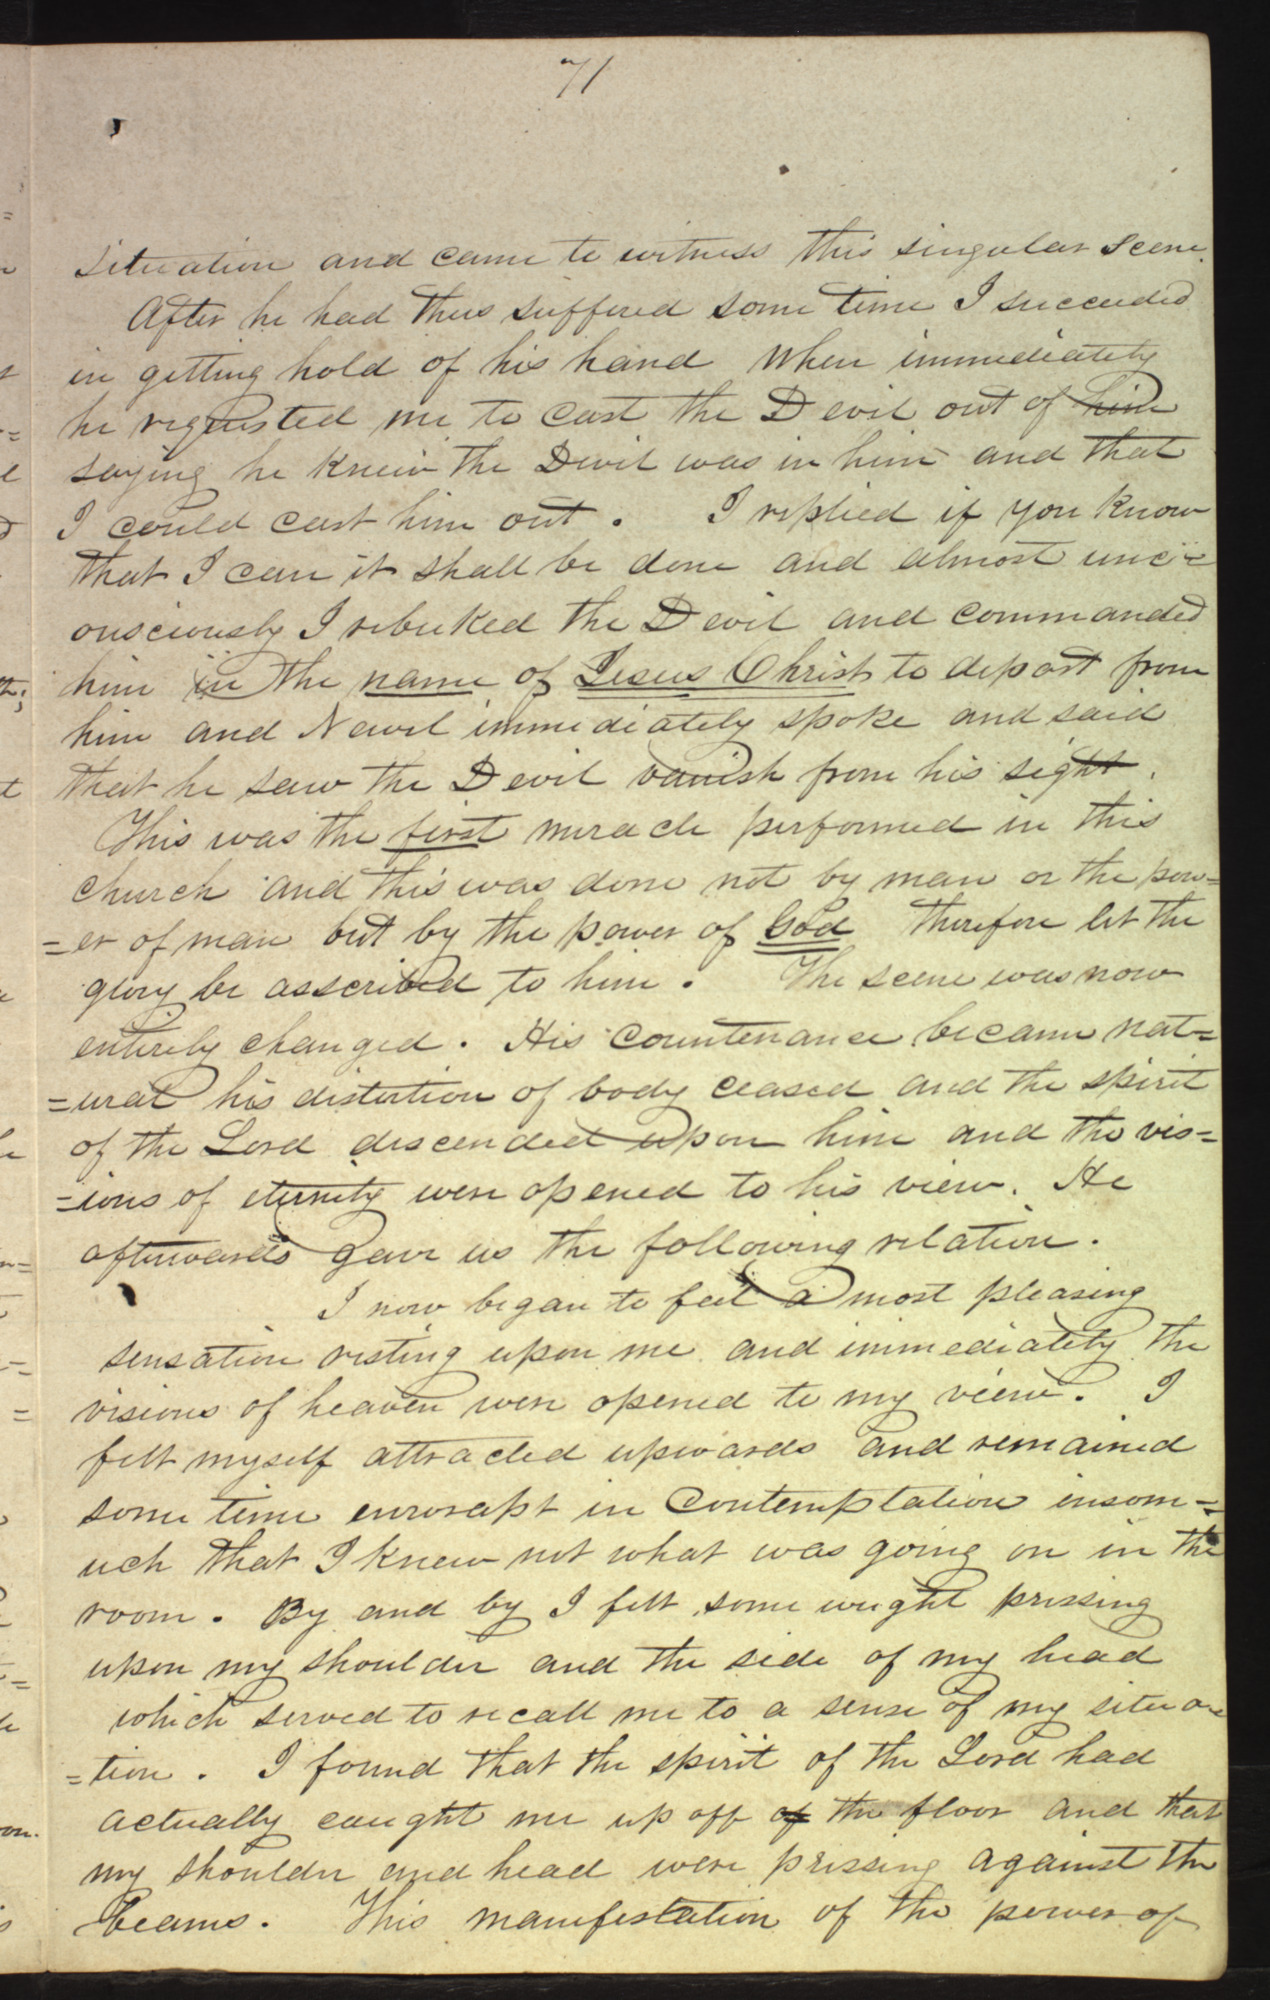 71
situation and came to witness this singular scene.
After he had thus suffered some time I succeeded
in getting hold of his hand When immediately
he requested me to cast the Devil out of him
saying he knew the Devil was in him and that
I could cast him out. I replied if you know
that I can it shall be done and almost unc=
onsciously I rebuked the Devil and commanded
him in the name of Jesus Christ to depart from
him and Newel immediately spoke and said
that he saw the Devil vanish from his sight.
This was the first miracle performed in this
church and this was done not by man or the pow=
=er of man but by the power of God therefore let the
glory be asscribed to him. The scene was now
entirely changed. His countenance became nat=
=ural his distortion of body ceased and the spirit
of the Lord descended upon him and the vis=
=ions of eternity were opened to his view. He
afterwards gave us the following relation.
I now began to feel a most pleasing
sensation resting upon me and immediately the
visions of heaven were opened to my view. I
felt myself attracted upwards and remained
some time enwrapt in Contemptation insom=
uch that I knew not what was going on in the
room. By and by I felt some weight pressing
upon my shoulder and the side of my head
which served to recall me to a sense of my situa=
=tion. I found that the spirit of the Lord had
actually caught me up off of the floor and that
my shoulder and head were pressing against the
beams. This manifestation of the power of